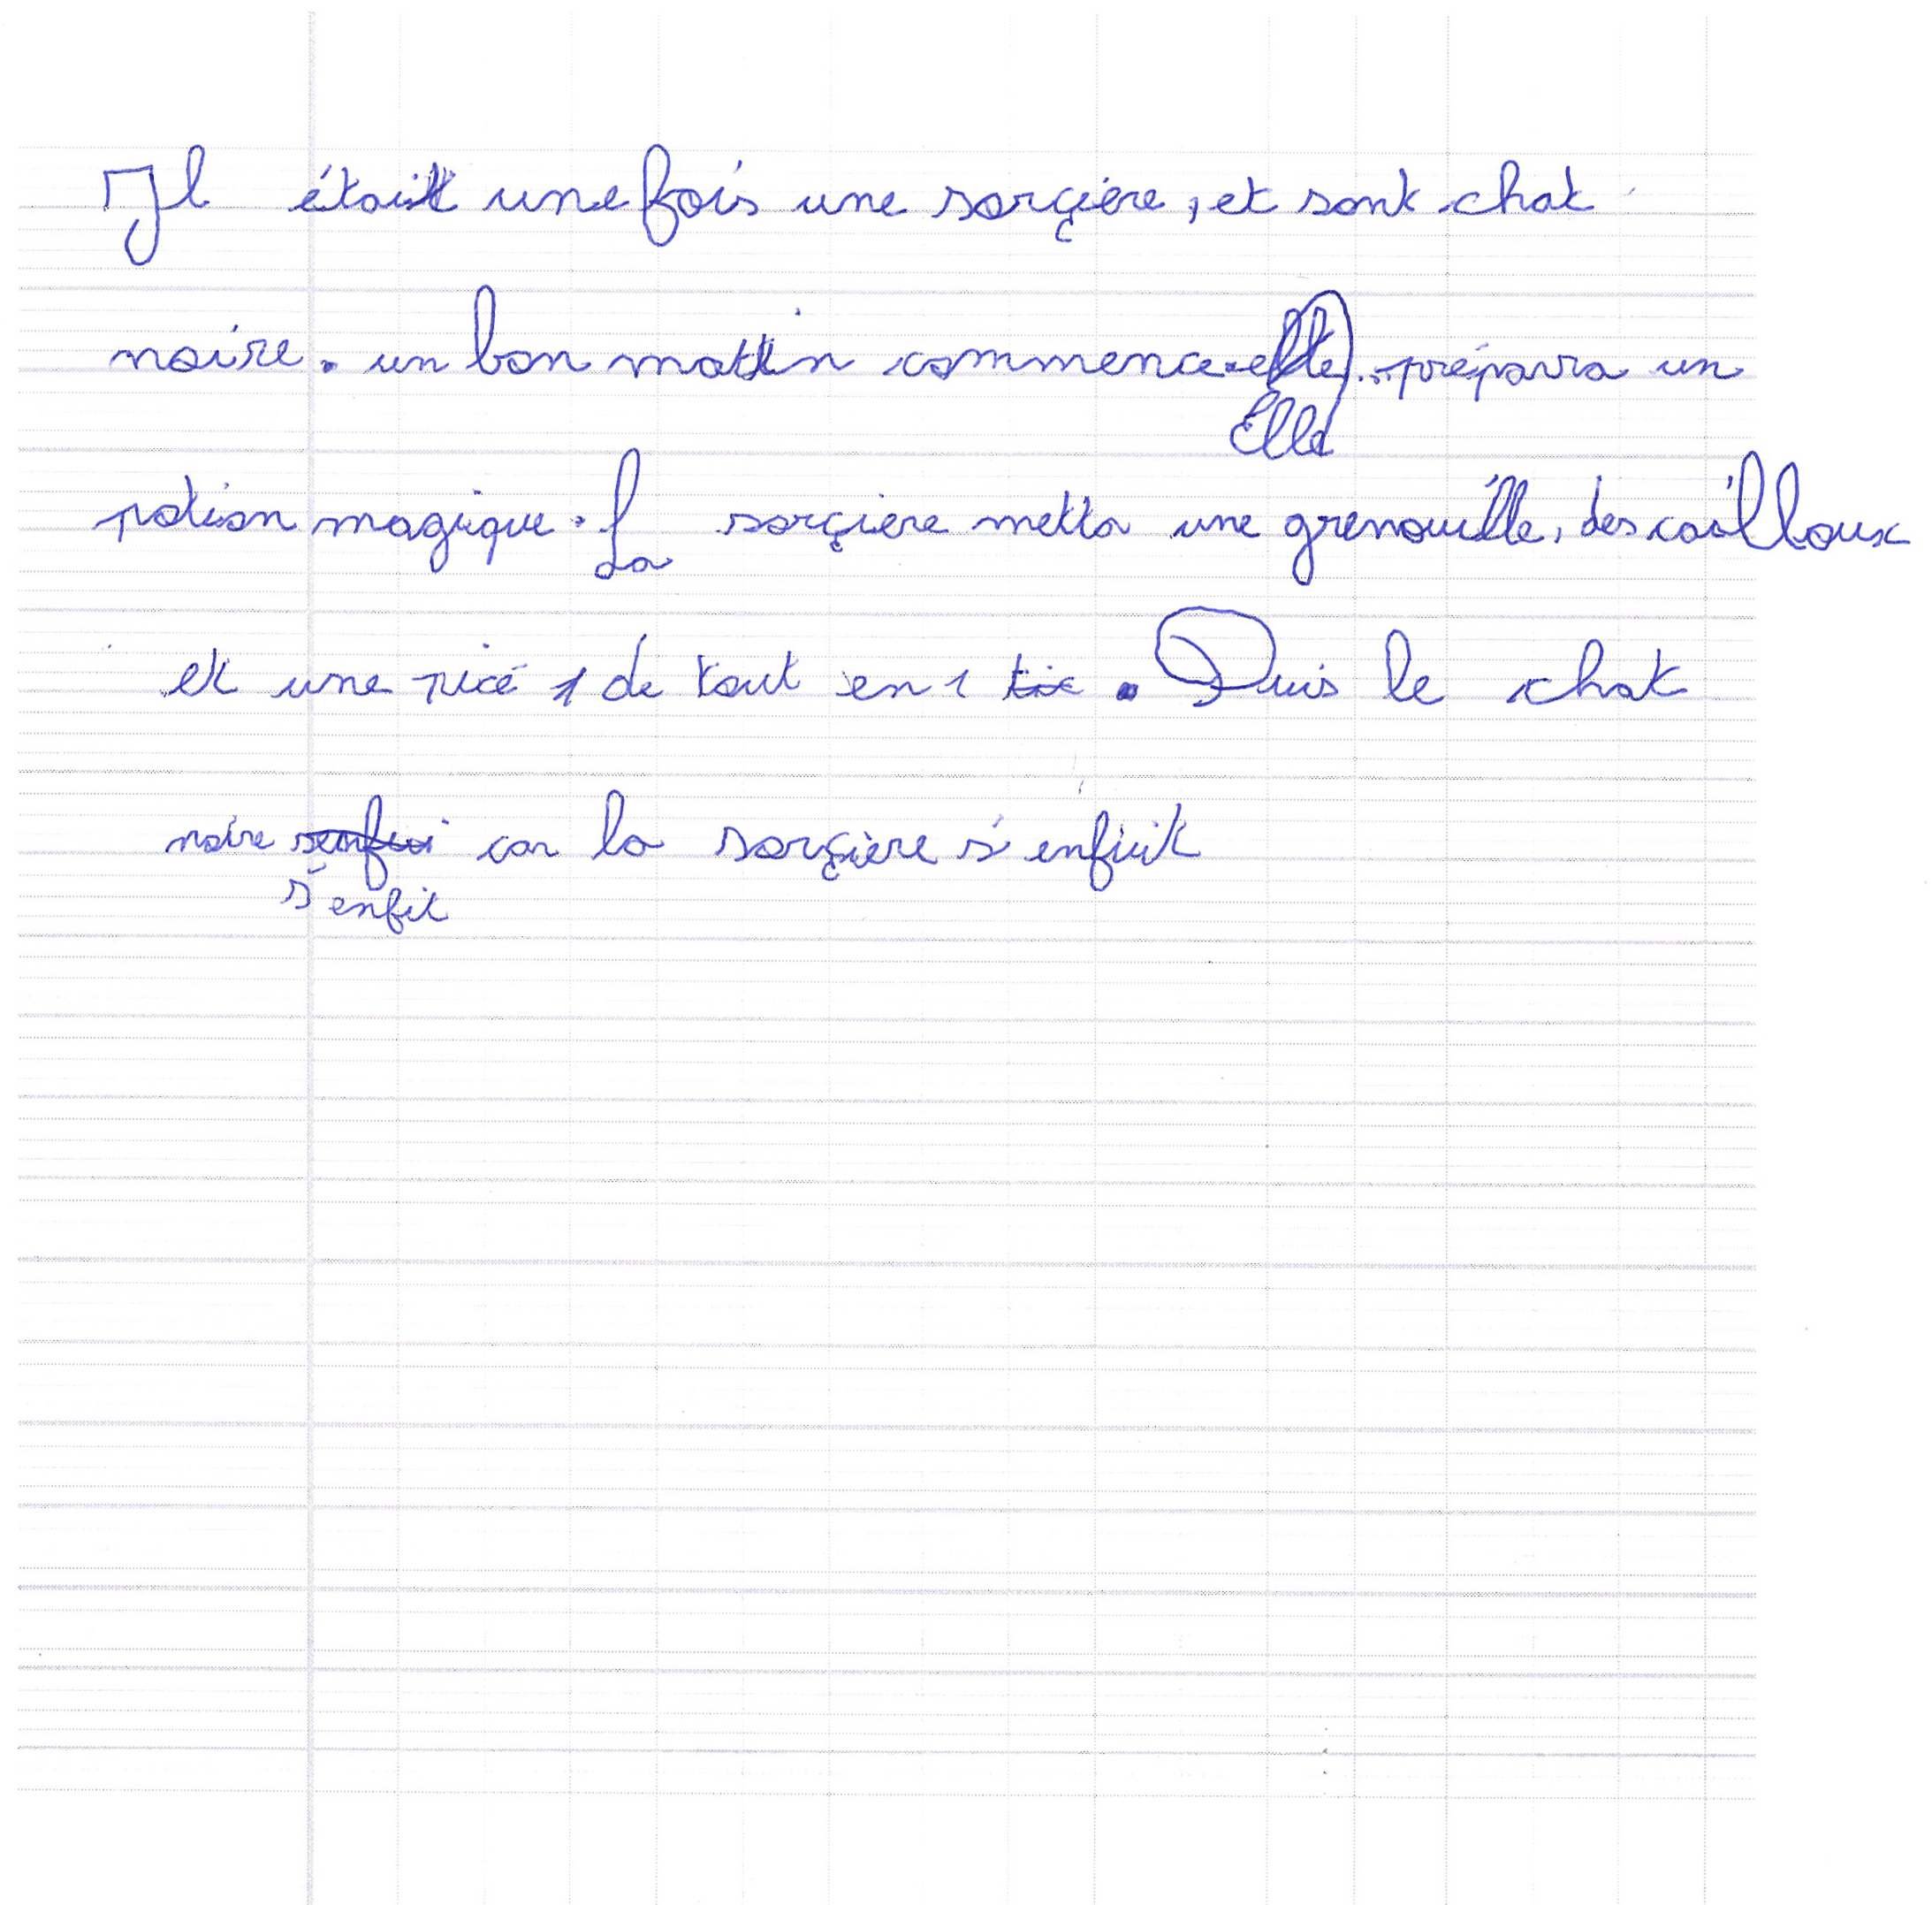 Il était une fois une sorçière, et sont chat
noire. un bon mattin commence. elle préparra un
Elle
potion magique. La sorçière metta une grenouille, des cailloux
et une picé 1 de tout en 1 tic. Puis le chat
noire senfui car la sorçière s'enfuit
s'enfit